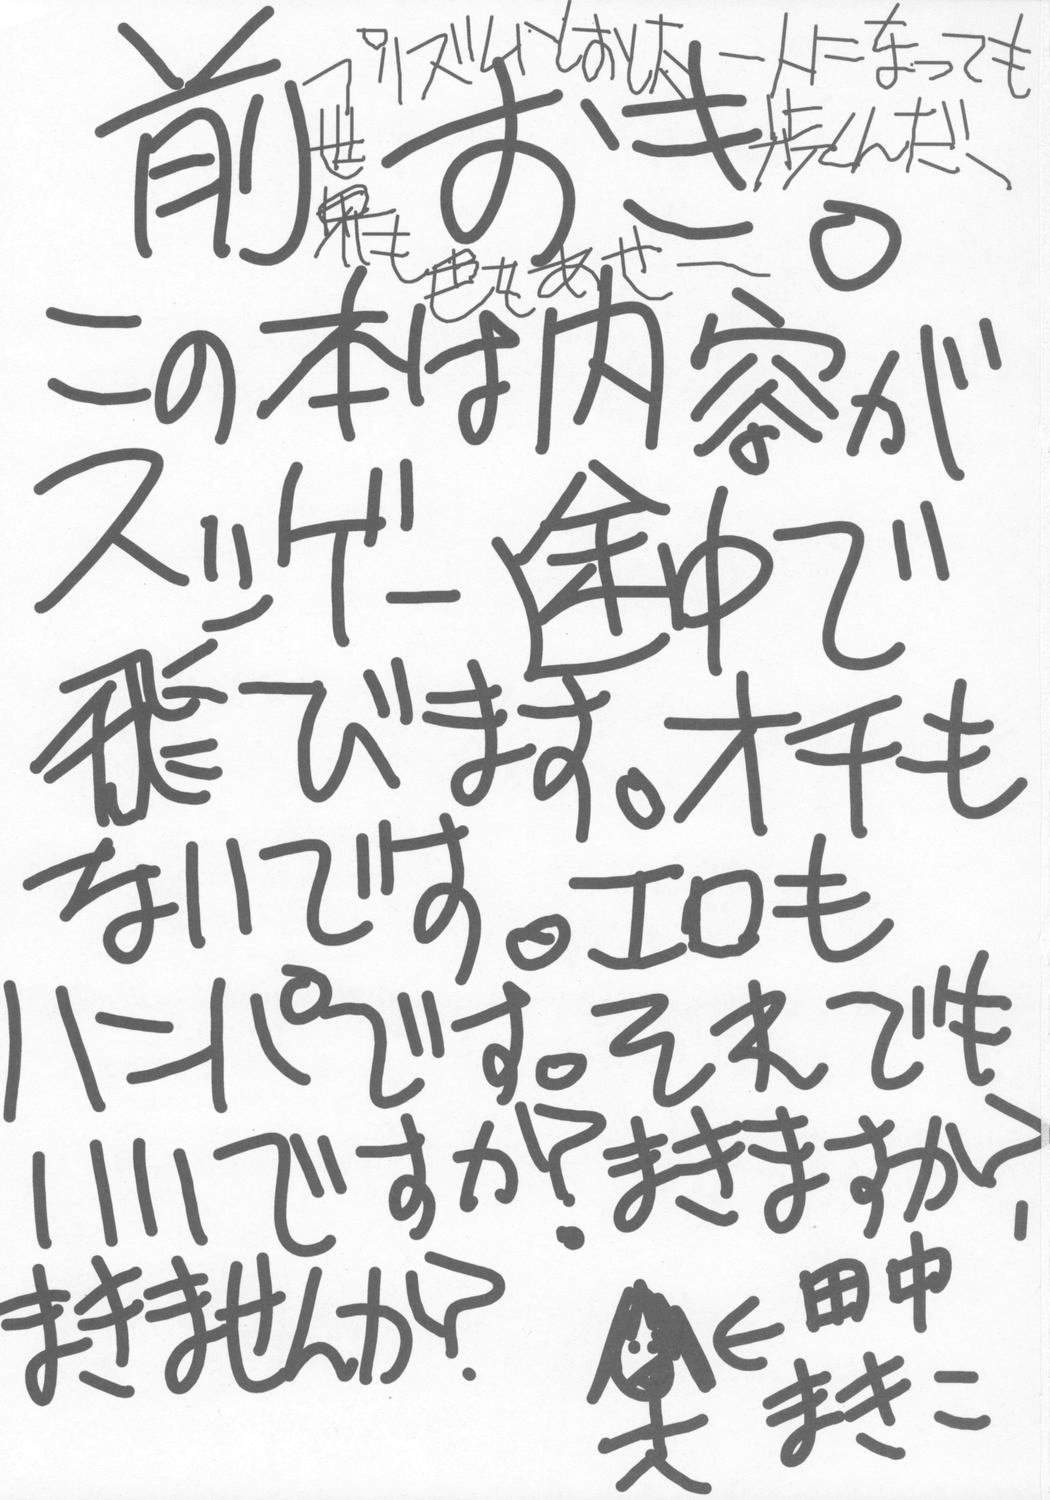 プリズムをとおした 一人になっても
歩くんだ、
世界も色をあせ
前おき。
この本は内容が
スッゲー途中で
飛びます。オチも
ないです。エロも
ハンパです。それでも
いいですか?まきますか?
まきませんか?
田中
まきこ